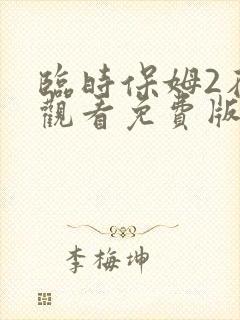 臨時保姆2在
觀看免費版
李梅坤